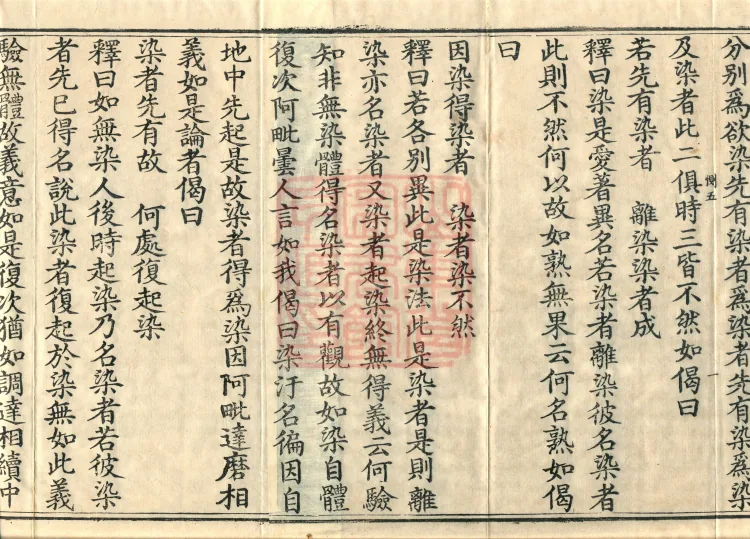 分別為欲染先有染者為染者先有染為染
及染者此二俱時三皆不然如偈曰
若先有染者　離染染者成
釋曰染是愛著異名若染者離染彼名染者
此則不然何以故如熟無果云何名熟如偈
曰
因染得染者　染者染不然
釋曰若各別異此是染法此是染者是則離
染亦名染者又染者起染終無得義云何驗
知非無染體得名染者以有觀故如染自體
復次阿毗曇人言如我偈曰染汙名徧因自
地中先起是故染者得為染因阿毗達磨相
義如是論者偈曰
染者先有故　何處復起染
釋曰如無染人後時起染乃名染者若彼染
者先已得名說此染者復起於染無如此義
驗無體故義意如是復次猶如調達相續中